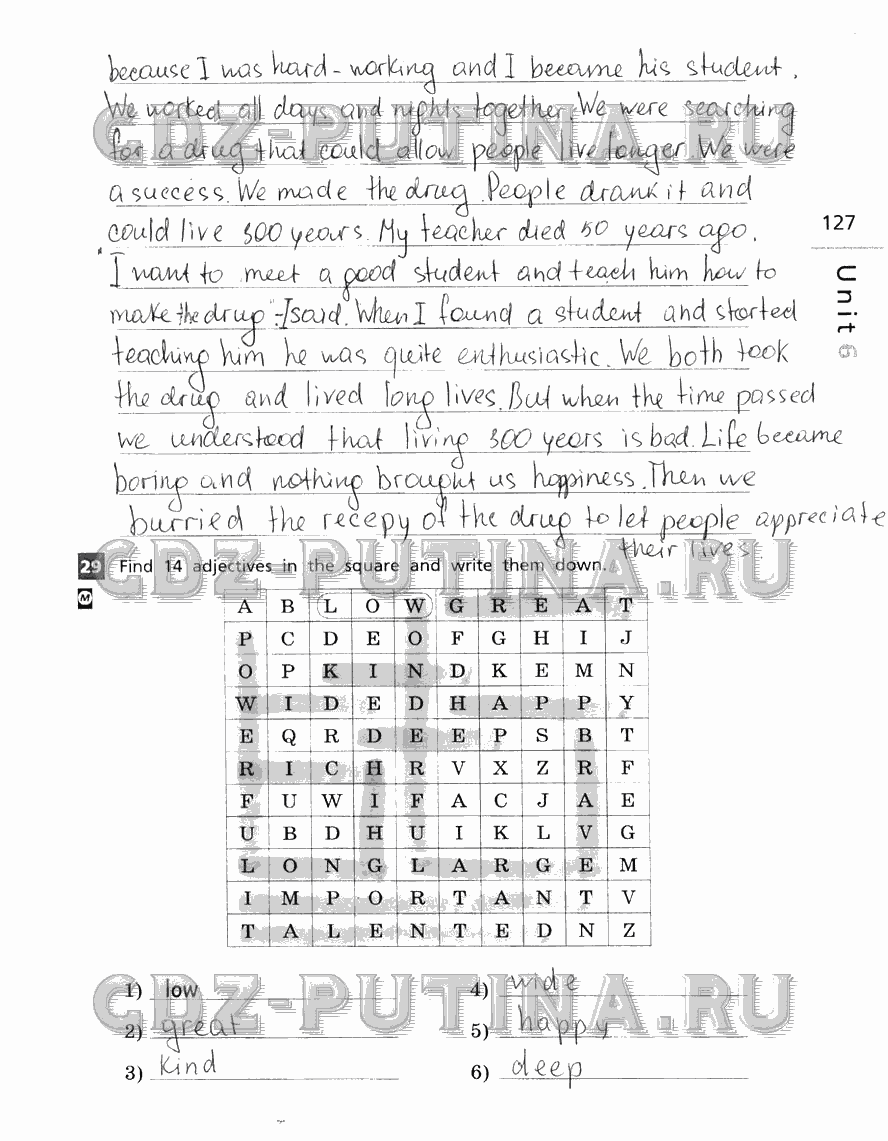 because I was hard-working and I became his student.
We worked all days and nights together. We were searching
for a drug that could allow people live longer. We were
a success. We made the drug. People drank it and
could live 300 years. My teacher died 50 years ago.
"I want to meet a good student and teach him how to
make the drug"-I said. When I found a student and started
teaching him he was quite enthusiastic. We both took
the drug and lived long lives. But when the time passed
we understood that living 300 years is bad. Life became
boring and nothing brought us happiness. Then we
burried the recepy of the drug to let people appreciate
their lives.
127
Unit 6
GDZ-PUTINA.RU
GDZ-PUTINA.RU
29 Find 14 adjectives in the square and write them down.
M
A B L O W G R E A T
P C D E O F G H I J
O P K I N D K E M N
W I D E D H A P P Y
E Q R D E E P S B T
R I C H R V X Z R F
F U W I F A C J A E
U B D H U I K L V G
L O N G L A R G E M
I M P O R T A N T V
T A L E N T E D N Z
GDZ-PUTINA.RU
1) low
2) great
3) kind
4) wide
5) happy
6) deep